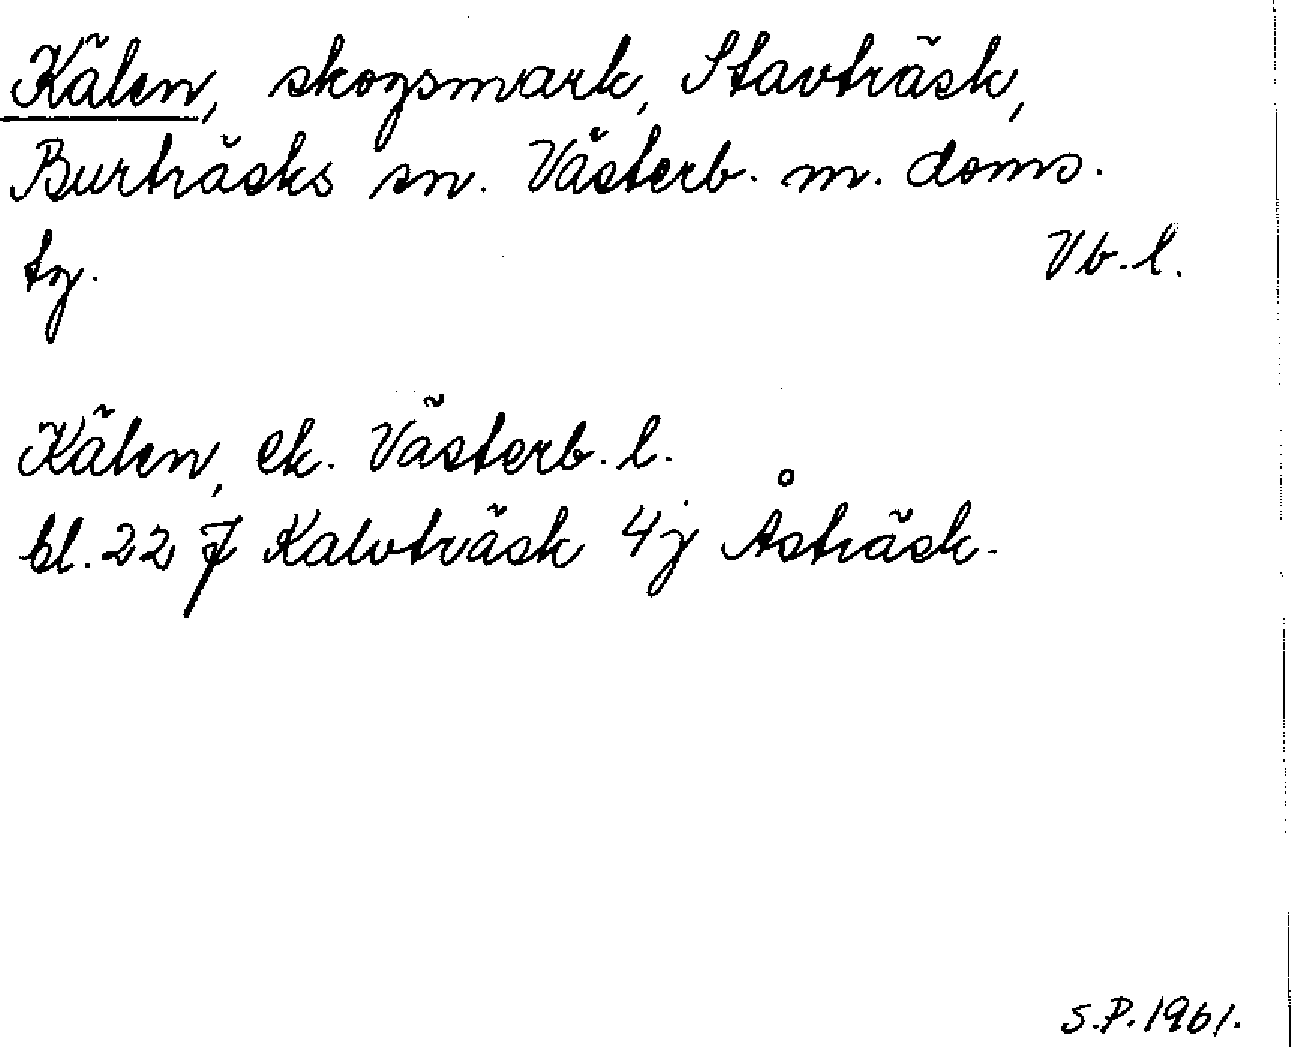 Kälen, skogsmark, Stavträsk,
Burträsks sn. Västerb. m. doms.
tg. Vb. l.
Kälen, ek. Västerb. l.
bl. 22 J Kalvträsk 4j Åsträsk.
S.P. 1961.